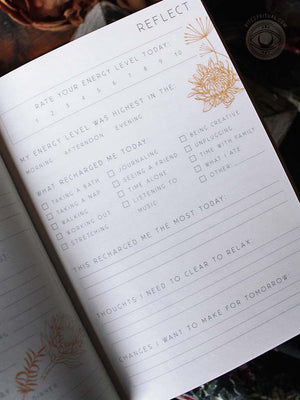 REFLECT
RATE YOUR ENERGY LEVEL TODAY:
1 2 3 4 5 6 7 8 9 10
MY ENERGY LEVEL WAS HIGHEST IN THE:
MORNING AFTERNOON EVENING
WHAT RECHARGED ME TODAY
TAKING A BATH
TAKING A NAP
WALKING
WORKING OUT
STRETCHING
JOURNALING
SEEING A FRIEND
TIME ALONE
LISTENING TO
MUSIC
BEING CREATIVE
UNPLUGGING
TIME WITH FAMILY
WHAT I ATE
OTHER:
THIS RECHARGED ME THE MOST TODAY:
THOUGHTS I NEED TO CLEAR TO RELAX
CHANGES I WANT TO MAKE FOR TOMORROW